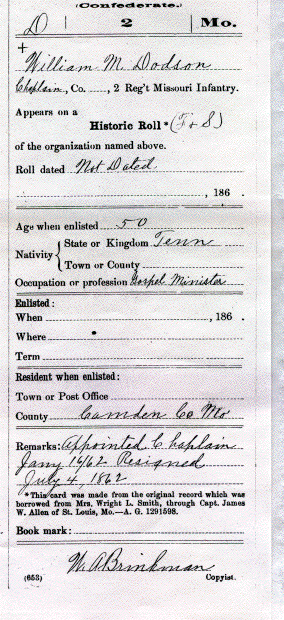 (Confederate.)
D | 2 | Mo.
+
William M. Dodson
Chaplain, Co. ......, 2 Reg't Missouri Infantry.
Appears on a
Historic Roll* (F & S)
of the organization named above.
Roll dated Not Dated
, 186 .
Age when enlisted 50
Nativity { State or Kingdom Tenn
Town or County
Occupation or profession Gospel Minister
Enlisted:
When , 186 .
Where
Term
Resident when enlisted:
Town or Post Office
County Camden Co Mo
Remarks: Appointed Chaplain
Jany 16/62 Resigned
July 4, 1862
*This card was made from the original record which was
borrowed from Mrs. Wright L. Smith, through Capt. James
W. Allen of St. Louis, Mo.—A. G. 1291598.
Book mark:
W. A Brinkman
(653) Copyist.